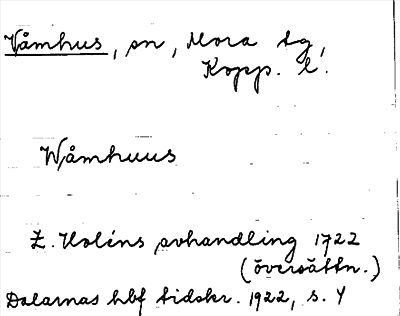 Våmhus, sn, Mora tg,
Kopp. l.
Wåmhuus
Z. Holéns avhandling 1722
(översättn.)
Dalarnas hbf tidskr. 1922, s. 4